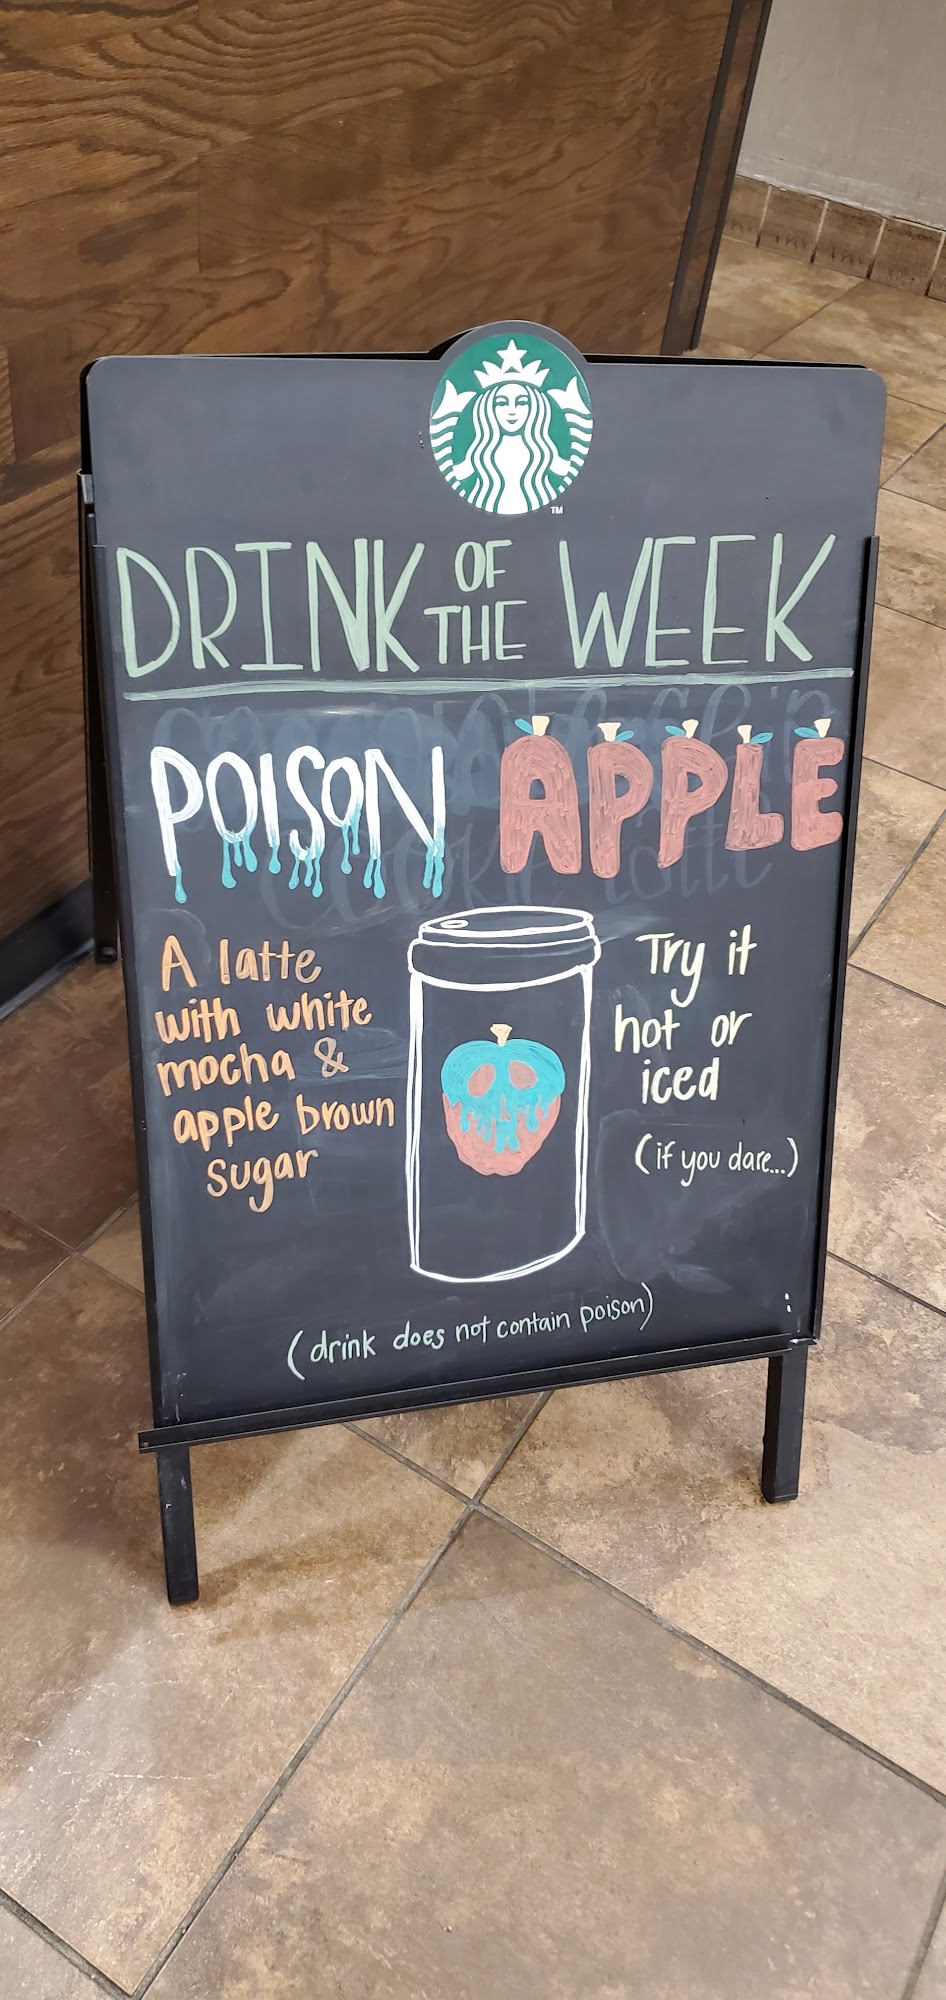 TM
DRINK OF THE WEEK
POISON APPLE
A latte
with white
mocha &
apple brown
sugar
Try it
hot or
iced
(if you dare...)
(drink does not contain poison)
cookie latte